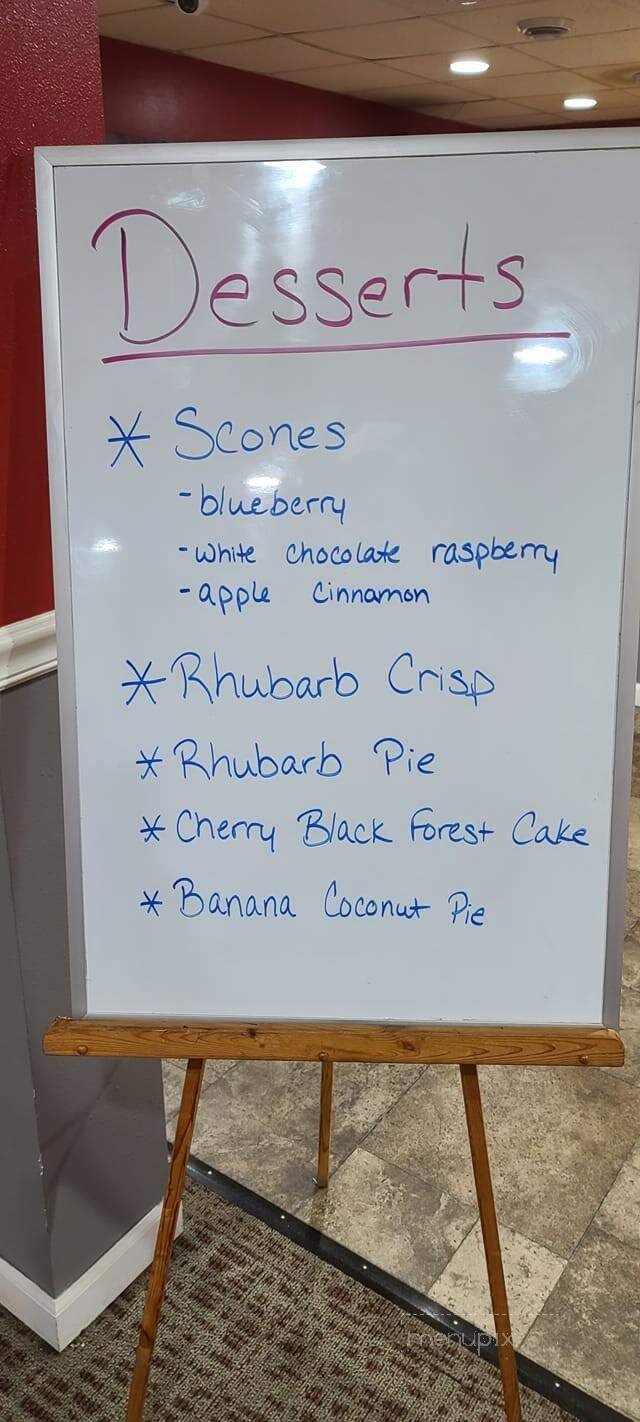 Desserts
* Scones
- blueberry
- white chocolate raspberry
- apple cinnamon
* Rhubarb Crisp
* Rhubarb Pie
* Cherry Black Forest Cake
* Banana Coconut Pie
menupix